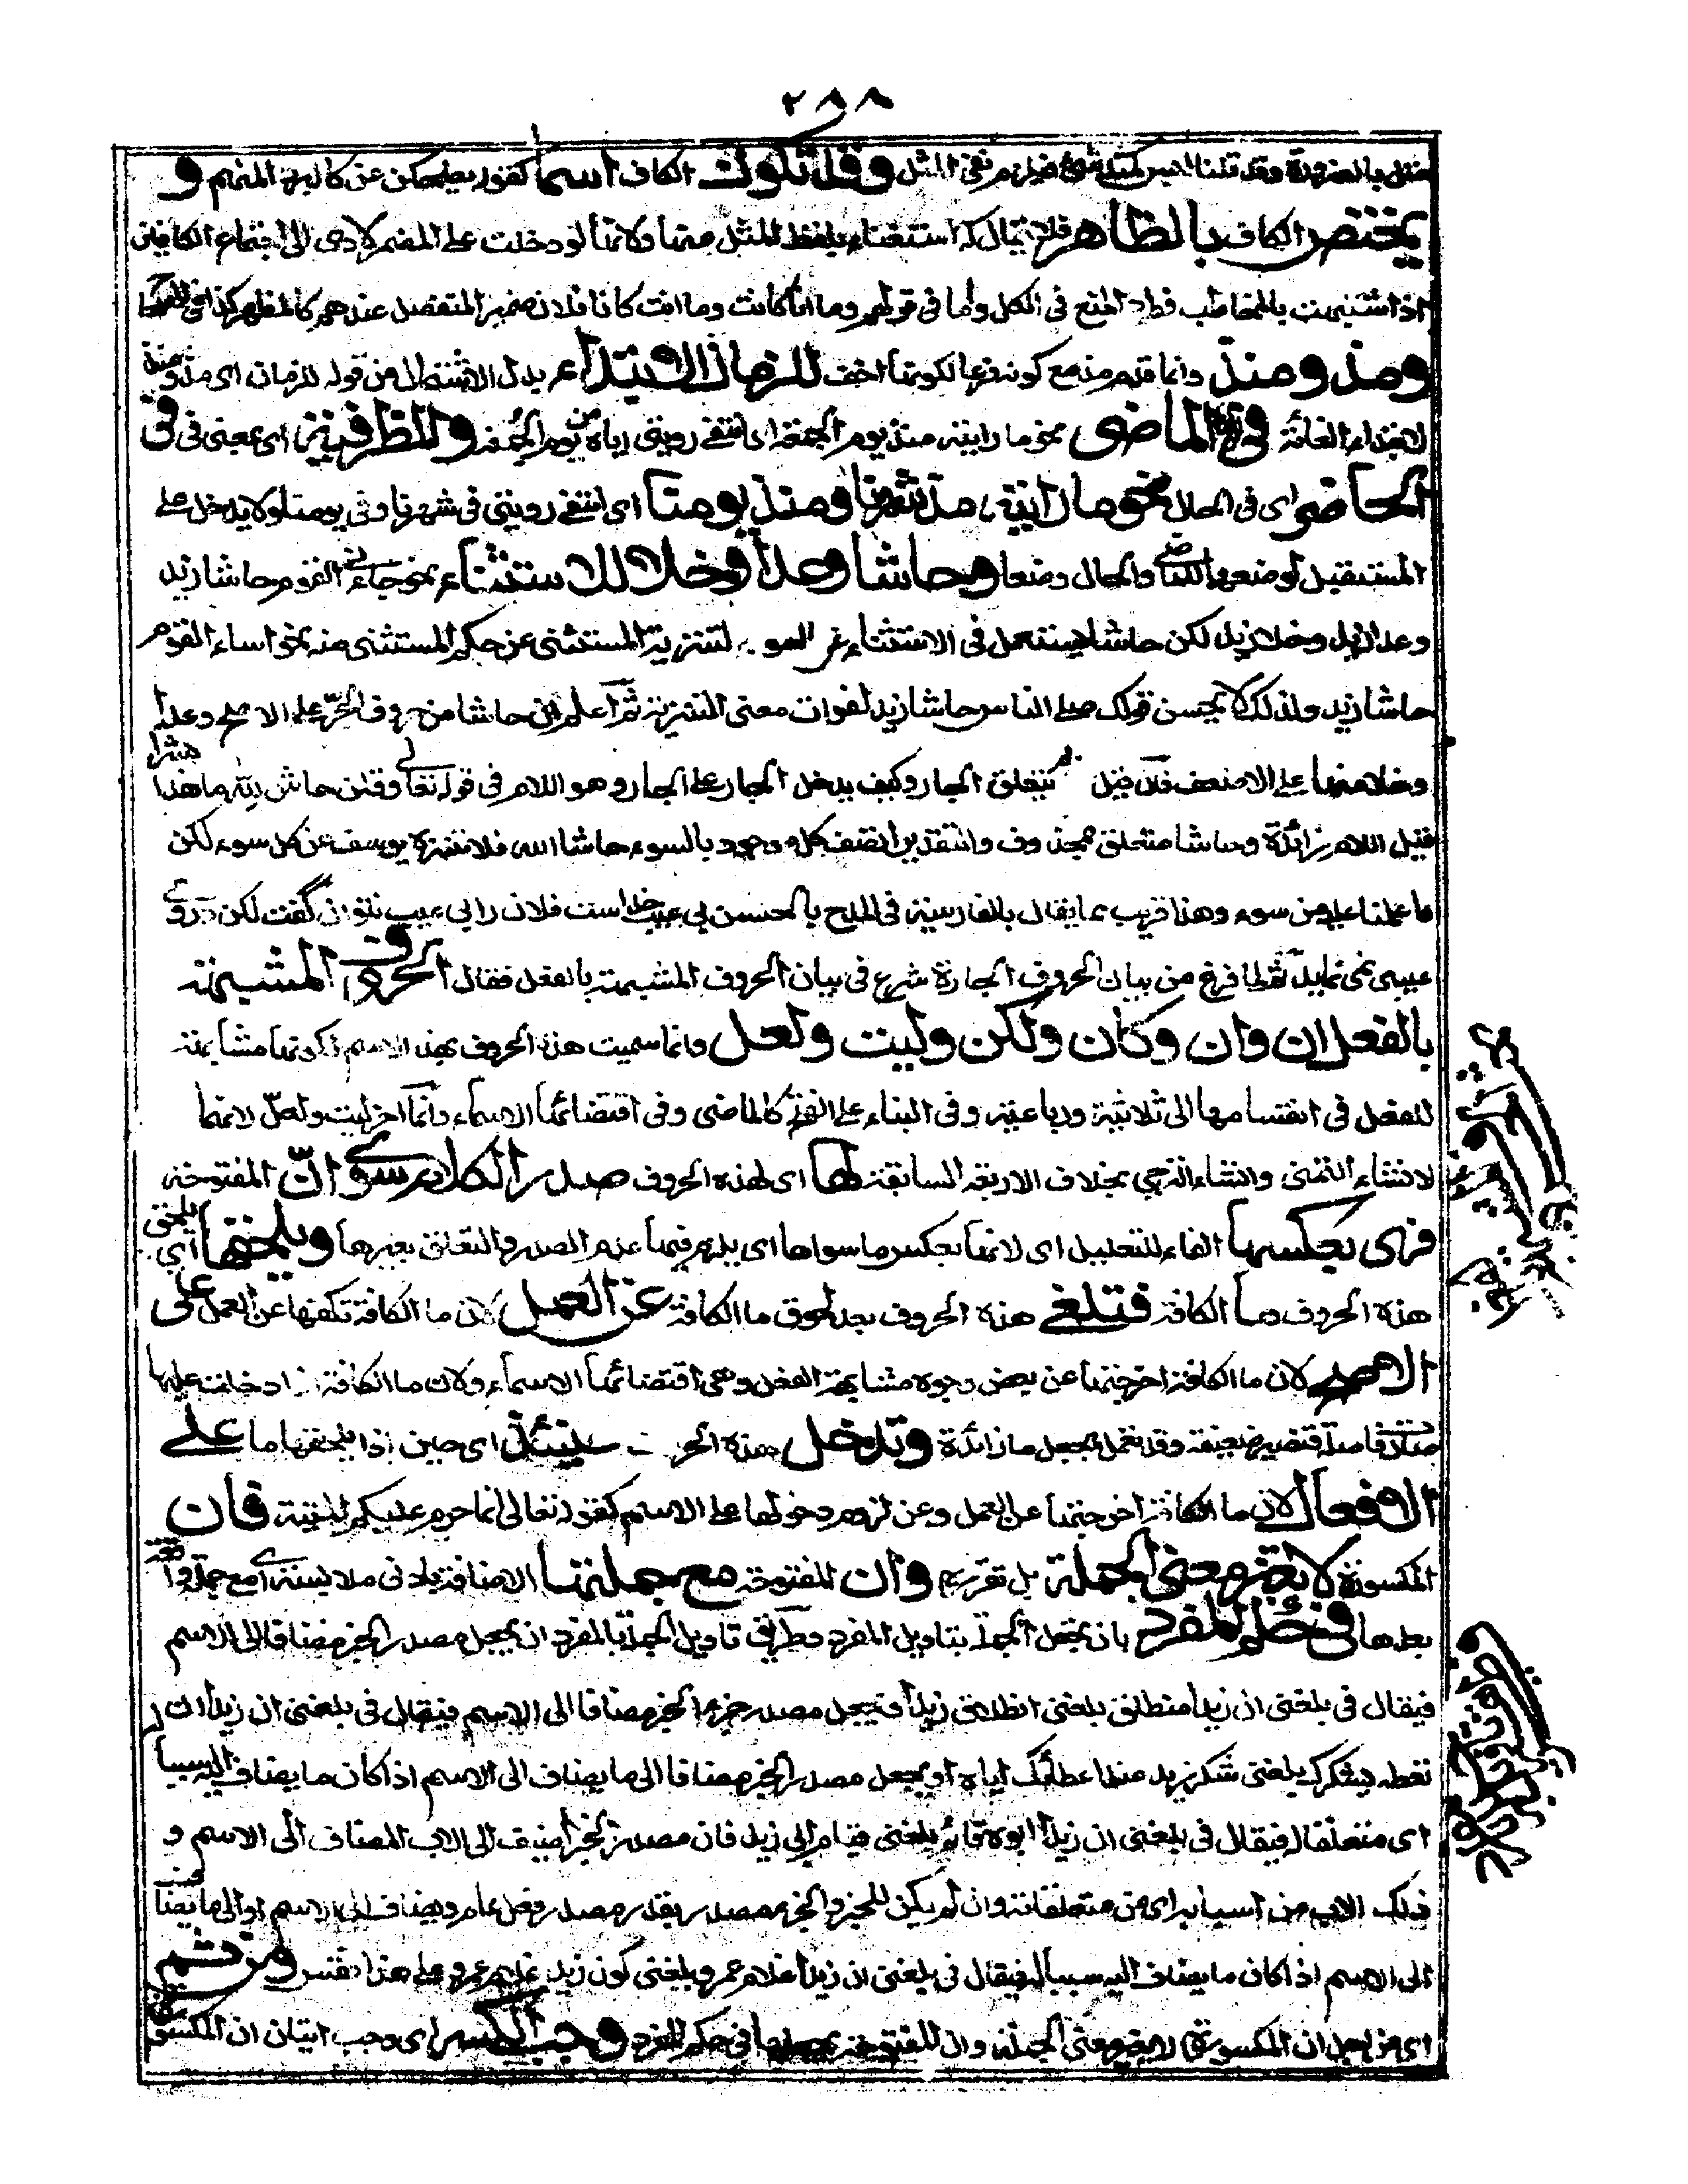 ٢٨٨
مثل بالضرورة وقد قلنا ليس كمثله شئ فيلزم نفى المثل وقد تكون الكاف اسما كقوله يضحكن عن كالبرد المنهم و
يختص الكاف بالظاهر فلا يقال كه استغناء بلفظ المثل عنها ولانها لو دخلت على المضمر لادى الى اجتماع الكافين
اذا شبهت بالمخاطب فطرد المنع فى الكل واما فى قولهم وما انا كانت وما انت كانا فلان ضمير المنفصل عندهم كالمظهر كذا فى
ومذ ومنذ وانما قدم مذ مع كونه فرعا لكونها اخف للزمان الابتداء بدل الاشتمال من قوله للزمان اى مذ ومنذ
لابتداء الغاية فى الماضى نحو ما رايته منذ يوم الجمعة اى انتفى رويتى اياه من يوم الجمعة وللظرفية اى بمعنى فى فى
الحاضر اى فى الحال نحو ما رايته مذ شهرنا ومنذ يومنا اى انتفى رويتى فى شهرنا وفى يومنا ولا يدخل على
المستقبل لوضعهما للماضى والحال وضعا وحاشا وعدا وخلا للاستثناء نحو جاءنى القوم حاشا زيد
وعدا زيد وخلا زيد لكن حاشا يستعمل فى الاستثناء عن السوء لتنزيه المستثنى عن حكم المستثنى منه نحو اساء القوم
حاشا زيد ولذلك لا يحسن قولك صلى الناس حاشا زيد لفوات معنى التنزيه ثم اعلم ان حاشا من حروف الجر على الاصح وعدا
وخلا منها على الاضعف فان قيل لم يتعلق الجار وكيف يدخل الجار على الجار وهو اللام فى قوله تعالى وقلن حاش لله ما هذا بشرا
قيل اللام زائدة وحاشا متعلق بمحذوف والتقدير اتصف كل موجود بالسوء حاشا الله فلا تنزه يوسف عن كل سوء لكن
ما علمنا عليه من سوء وهذا قريب مما يقال بالفارسية فى المدح بالحسن بى عيب خداست فلان را بى عيب نتوان گفت لكن در وى
عيبى نمى نمايد ولما فرغ من بيان الحروف الجارة شرع فى بيان الحروف المشبهة بالفعل فقال الحروف المشبهة
بالفعل ان وان وكان ولكن وليت ولعل وانما سميت هذه الحروف بهذا الاسم لكونها مشابهة
للفعل فى انقسامها الى ثلاثية ورباعية وفى البناء على الفتح كالماضى وفى اقتضائها الاسماء وانما اخر ليت ولعل لانهما
لانشاء التمنى وانشاء الترجى بخلاف الاربعة السابقة لها اى لهذه الحروف صدر الكلام سوى ان المفتوحة
فهى بعكسها الفاء للتعليل اى لانها بعكس ما سواها اى يلزم فيها عدم الصدر والتعلق بغيرها ويلحقها اى يلحق
هذه الحروف ما الكافة فتلغى هذه الحروف بعد لحوق ما الكافة عن العمل لان ما الكافة تكفها عن العمل على
الاصح لان ما الكافة اخرجتها عن بعض وجوه مشابهة الفعل وهى اقتضائها الاسماء ولان ما الكافة اذا دخلت عليها
صارت فاصلة فتصير ضعيفة وقد تعمل بجعل ما زائدة وتدخل هذه الحروف حينئذ اى حين اذا يلحقها ما على
الافعال لان ما الكافة اخرجتها عن العمل وعن لزوم دخولها على الاسم كقوله تعالى انما حرم عليكم الميتة فان
المكسورة لا تغير معنى الجملة بل تقرره وان المفتوحة مع جملتها الاضافة بادنى ملابسة اى مع جملة واقعة
بعدها فى حكم المفرد بان يجعل الجملة بتاويل المفرد وطريق تاويل الجملة بالمفرد ان يجعل مصدر الخبر مضافا الى الاسم
فيقال فى بلغنى ان زيدا منطلق بلغنى انطلاق زيد او يجعل مصدر جزء الخبر مضافا الى الاسم فيقال فى بلغنى ان زيدا ان
تعطه يشكرك بلغنى شكر زيد عند اعطائك اياه او يجعل مصدر الخبر مضافا الى ما يضاف الى الاسم اذا كان ما يضاف اليه سببا
اى متعلقا له فيقال فى بلغنى ان زيدا ابوه قائم بلغنى قيام ابى زيد فان مصدر الخبر اضيف الى الاب المضاف الى الاسم و
ذلك الاب من اسبابه اى من متعلقاته وان لم يكن للخبر والجزء مصدر يقدر مصدر فعل عام ويضاف الى الاسم او الى ما يضاف
الى الاسم اذا كان ما يضاف اليه سببا له فيقال فى بلغنى ان زيدا غلام عمرو بلغنى كون زيد غلام عمرو وعلى هذا فقس ومن ثم
اى من اجل ان المكسورة لا تغير معنى الجملة وان المفتوحة بجملتها فى حكم المفرد وجب الكسر اى وجب اتيان ان المكسورة